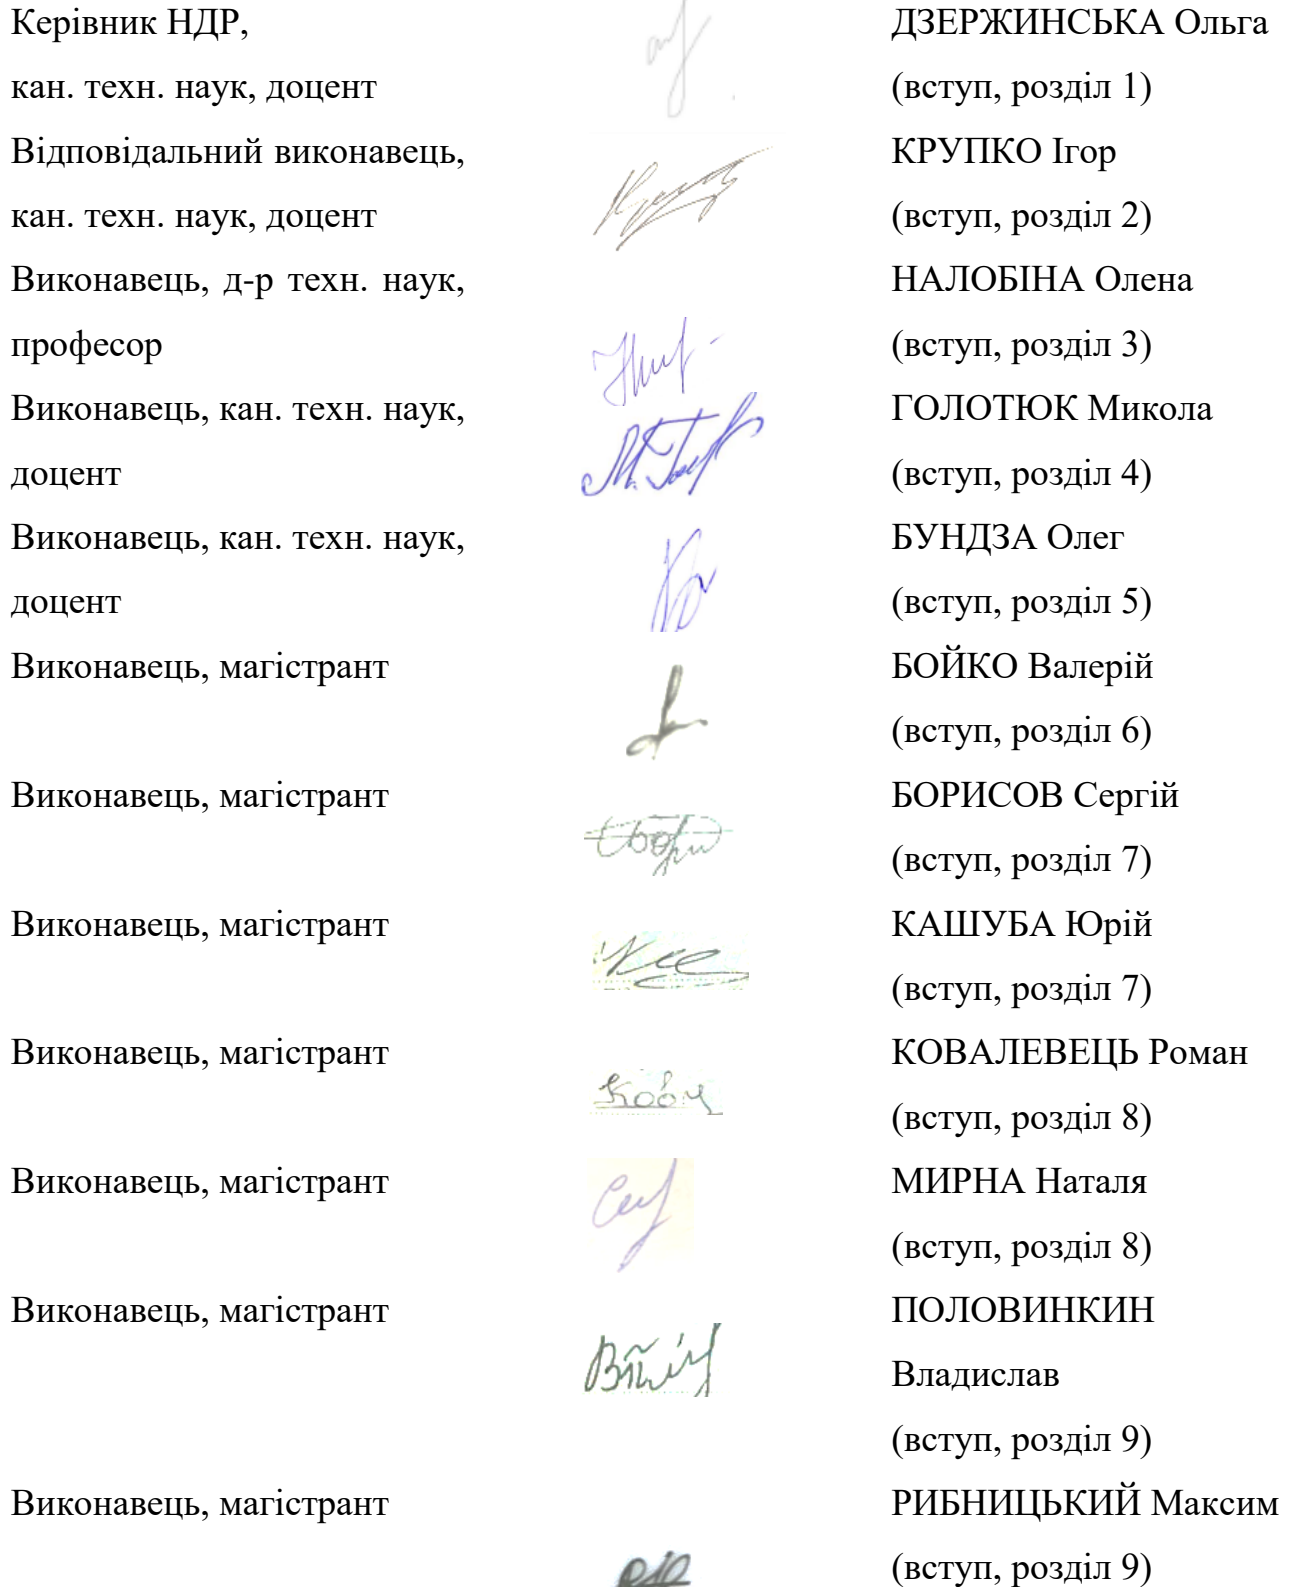 Керівник НДР, ДЗЕРЖИНСЬКА Ольга
кан. техн. наук, доцент (вступ, розділ 1)
Відповідальний виконавець, КРУПКО Ігор
кан. техн. наук, доцент (вступ, розділ 2)
Виконавець, д-р техн. наук, НАЛОБІНА Олена
професор (вступ, розділ 3)
Виконавець, кан. техн. наук, ГОЛОТЮК Микола
доцент (вступ, розділ 4)
Виконавець, кан. техн. наук, БУНДЗА Олег
доцент (вступ, розділ 5)
Виконавець, магістрант БОЙКО Валерій
(вступ, розділ 6)
Виконавець, магістрант БОРИСОВ Сергій
(вступ, розділ 7)
Виконавець, магістрант КАШУБА Юрій
(вступ, розділ 7)
Виконавець, магістрант КОВАЛЕВЕЦЬ Роман
(вступ, розділ 8)
Виконавець, магістрант МИРНА Наталя
(вступ, розділ 8)
Виконавець, магістрант ПОЛОВИНКИН
Владислав
(вступ, розділ 9)
Виконавець, магістрант РИБНИЦЬКИЙ Максим
(вступ, розділ 9)